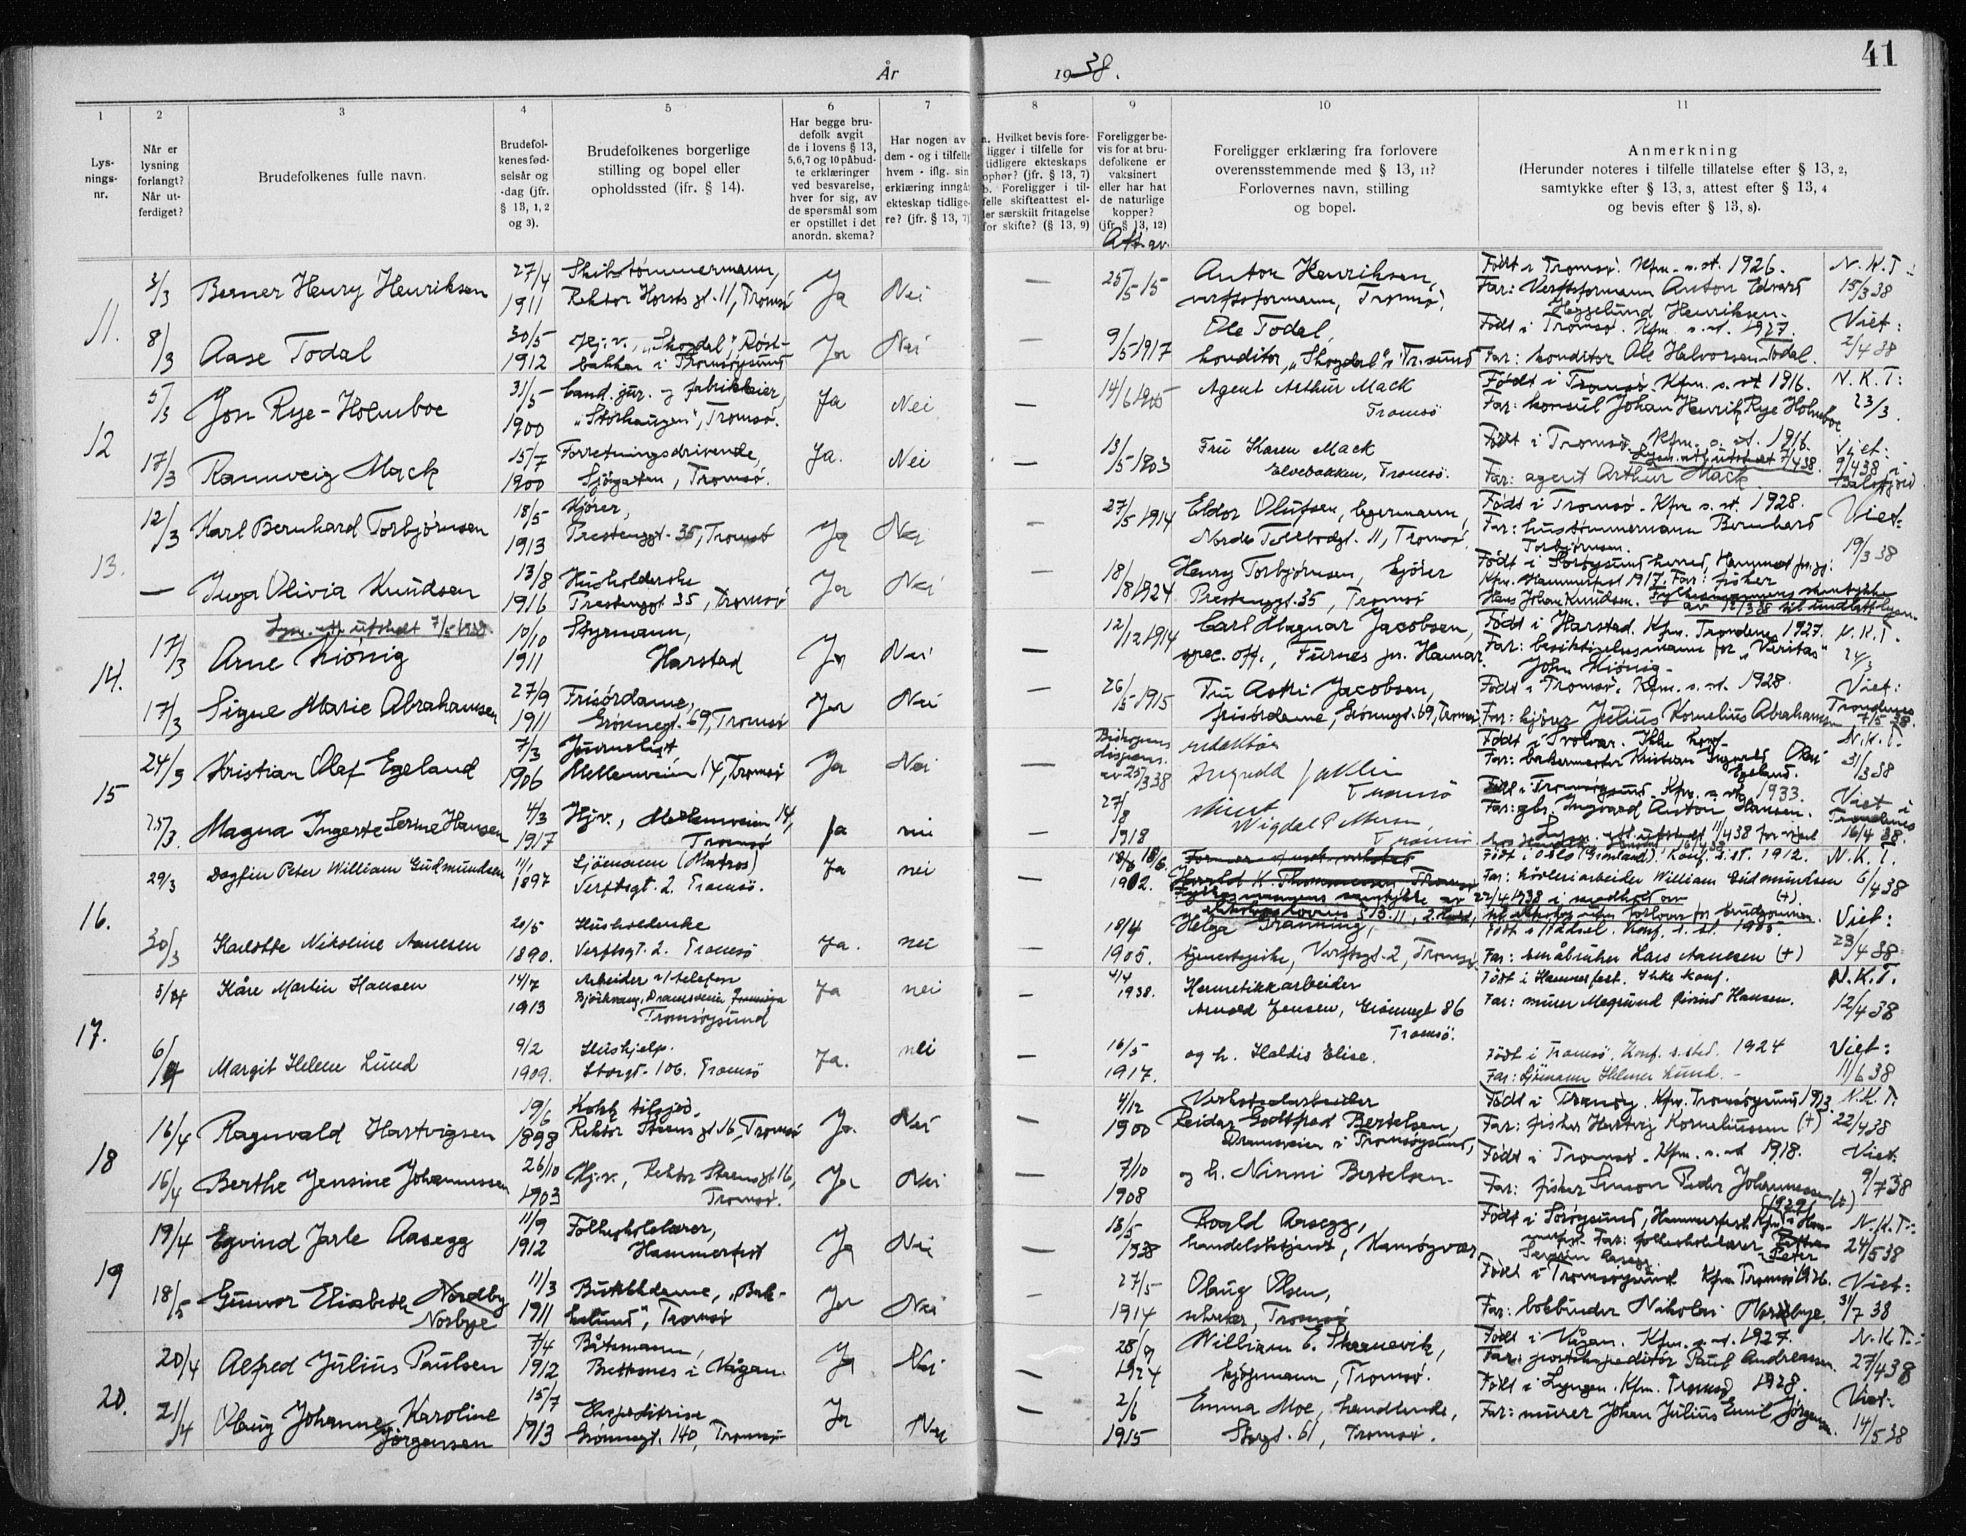 41
År 1938.
1 2 3 4 5 6 7 8 9 10 11
Lys-
nings-
nr.
Når er
lysning
forlangt?
Når ut-
ferdiget?
Brudefolkenes fulle navn.
Brudefol-
kenes fød-
selsår og
-dag (jfr.
§ 13, 1, 2
og 3).
Brudefolkenes borgerlige
stilling og bopel eller
opholdssted (jfr. § 14).
Har begge bru-
defolk avgit
de i lovens § 13,
5,6,7 og 10 påbud-
te erklæringer
ved besvarelse,
hver for sig, av
de spørsmål som
er opstillet i det
anordn. skema?
Har nogen av
dem - og i tilfelle
hvem - iflg. sin
erklæring inngå
ekteskap tidlige-
re? (jfr. § 13, 7)
a. Hvilket bevis fore-
ligger i tilfelle for
tidligere ekteskaps
ophør? (jfr. § 13, 7)
b. Foreligger i til-
felle skifteattest el-
ler særskilt fritagelse
for skifte? (§ 13, 9)
Foreligger be-
vis for at bru-
defolkene er
vaksinert
eller har hat
de naturlige
kopper?
(jfr. § 13, 12)
Foreligger erklæring fra forlovere
overensstemmende med § 13, 11?
Forlovernes navn, stilling
og bopel.
Anmerkning
(Herunder noteres i tilfelle tillatelse efter § 13, 2,
samtykke efter § 13, 3, attest efter § 13, 4
og bevis efter § 13, 8).
Att. av
11.
3/3 Berner Henry Henriksen
27/4 1911
Skibstømmermann,
Rektor Horsts gt. 11, Tromsø
Ja Nei —
25/5 15
Anton Henriksen,
verftsformann, Tromsø.
Født i Tromsø. Kfm. s. st. 1926.
Far: Verftsformann Anton Edvard
Heggelund Henriksen.
N.K.T.:
15/3 38
8/3 Aase Todal
30/5 1912
Hj.v., "Skogdal", Røst-
bakken i Tromsøysund
Ja Nei —
9/5 1917
Ole Todal,
konditor, "Skogdal" i Tr.sund
Født i Tromsø. Kfm. s. st. 1927.
Far: konditor Ole Halvorsen Todal.
Viet:
2/4 38
12
5/3 Jon Rye-Holmboe
31/5 1900
Cand. jur. og fabrikkeier,
"Storhaugen", Tromsø.
Ja Nei —
14/6 1905
Agent Arthur Mack
Tromsø
Født i Tromsø Kfm. s. st. 1916.
Far: konsul Johan Henrik Rye Holmboe
N.K.T:
23/3.
17/3 Rannveig Mack
15/7 1900
Forretningsdrivende,
Sjøgaten, Tromsø.
Ja. Nei —
13/5 1903
Fru Karen Mack
Elvebakken, Tromsø.
Født i Tromsø. Kfm. s. st. 1916.
Lysn. att. utstedt 7/4 38.
Far: agent Arthur Mack.
Viet:
9/4 38 i
Balsfjord
13.
12/3 Karl Bernhard Torbjørnsen
18/5 1913
Kjører,
Prestenggt. 35, Tromsø
Ja Nei —
27/5 1914
Eldor Olufsen, lagermann,
Nordre Tollbodgt. 11, Tromsø.
Født i Tromsø. Kfm s. st. 1928.
Far: hustømmermann Bernhard
Torbjørnsen.
Viet:
19/3 38
— Inga Olivia Knudsen
13/8 1916
Husholderske
Prestenggt 35, Tromsø
Ja Nei —
18/8 1924
Henry Torbjørnsen, kjører
Prestenggt. 35, Tromsø
Født i Sørøysund herred, Hammerfest pr.gj.
Kfm. Hammerfest 1917. Far: fisker
Hans Johan Knudsen. Fylkesmannens samtykke
av 12/3 38 til undlatt lysn.
14.
Lysn. att. utstedt 7/5 1938.
17/3 Arne Kiønig
10/10 1911
Styrmann,
Harstad
Ja Nei —
12/12 1914
Carl Magnar Jacobsen,
spec. off., Furnes pr. Hamar.
Født i Harstad. Kfm. Trondenes 1927.
Far: besiktigelsesmann for "Veritas"
John Kiønig.
N.K.T.
24/3
17/3 Signe Marie Abrahamsen
27/9 1911
Frisørdame,
Grønnegt. 69, Tromsø
Ja Nei —
26/5 1915
Fru Astri Jacobsen,
frisørdame, Grønnegt. 69, Tromsø
Født i Tromsø. Kfm. s. st. 1928.
Far: kjører Julius Kornelius Abrahamsen
Viet:
Trondenes
7/5 38.
15
24/3 Kristian Olaf Egeland
7/3 1906
Journalist
Mellemveien 14, Tromsø
Ja Nei —
Biskopens
dispens.
av 25/3 38
redaktør
Ingvald Jaklin
Tromsø
Født i Svolvær. Ikke konf.
Far: bakermester Kristian Ingvald Olai
Egeland.
N.K.T.
31/3 38
25/3. Magna Ingerte Serine Hansen
4/3 1917
Hj.v., Mellemveien 14,
Tromsø
Ja nei —
27/8 1918
Wigdal
Tromsø
Født i Tromsøysund. Kfm. s. st. 1933.
Far: gbr. Ingvard Anton Hansen.
Lysn. att. utstedt 11/4 38 for vigsel
Viet i
Trondenes
16/4 38.
16.
29/3 Dagfin Peter William Gudmundsen
11/1 1897
Sjømann (Matros)
Verftsgt. 2. Tromsø.
Ja nei —
18/6 1902.
Harald K. Thomassen Tromsø
Fylkesmannens samtykke av 22/4 1938 i medhold av
ekteskapslovens § 13. 11, 2. ledd, til ekteskap uten forlover for brudgommen.
Født i Oslo (Grønland). Konf. s. st. 1912.
Far: høvleriarbeider William Gudmundsen
(+).
N.K.T.
6/4 38
30/3 Karlotte Nikoline Aanesen
20/5 1890.
Husholderske
Verftsgt. 2. Tromsø
Ja. nei —
18/4 1905.
Helga Dranning,
tjenestepike, Verftsgt. 2, Tromsø
Født i Hadsel. Konf. s. st. 1905.
Far: småbruker Lars Aanesen (+)
Viet:
23/4 38
17.
5/4 Kåre Martin Hansen
14/7 1913
Arbeider v/telefon
Tromsøysund
Ja nei —
4/4 1938.
Hermetikkarbeider
Arnold Jensen, Grønnegt 86
Tromsø.
Født i Hammerfest. Ikke konf.
Far: murer Magnund Eivind Hansen.
N.K.T.
12/4 38
6/4 Margit Helene Lund
9/2 1909.
Hushjelp.
Storgt. 106. Tromsø
Ja. nei —
16/5 1917.
og h. Haldis Elise.
Født i Tromsø. Konf. s. sted. 1924
Far: Sjømann Helmer Lund. -
Viet:
11/6 38
18
16/4 Ragnvald Hartvigsen
19/6 1898
Kokk tilsjøs,
Rektor Steens gt 16, Tromsø
Ja. Nei —
4/12 1900
Verkstedarbeider
Reidar Godtfred Bertelsen,
Dramsveien i Tromsøysund,
Født i Tranøy. Kfm. Tromsøysund 1913.
Far: fisker Hartvig Korneliussen (+)
N.K.T.
22/4 38
16/4 Berthe Jensine Johannessen
26/10 1903
Hj.v., Rektor Steensgt 16,
Tromsø.
Ja Nei —
7/10 1908
og h. Ninni Bertelsen.
Født i Tromsø. Kfm. s. st 1918.
Far: fisker Simon Peder Johannessen (+)
Viet:
9/7 38
19
19/4 Eyvind Jarle Aasegg
11/9 1912
Folkeskolelærer,
Hammerfest
Ja Nei —
13/5 1938
Roald Aasegg,
handelsbetjent, Hamsøyvær
Født i Sørøysund, Hammerfest. Kfm. i Ham-
merfest. Far: folkeskolelærer Petter
Severin Aasegg. Peter
(1927)
N.K.T.:
24/5 38
18/5 Gunvor Elisabeth Nordby
Norbye
11/3 1911
Butikkdame, "Bak-
kelund", Tromsø
Ja Nei —
27/5 1914
Olaug Olsen,
sekretær, Tromsø
Født i Tromsøysund Kfm. Tromsø 1926.
Far: bokbinder Nikolai Norbye.
Viet:
31/7 38
20.
20/4 Alfred Julius Paulsen
7/4 1912
Båtsmann,
Brettesnes i Vågan.
Ja Nei —
28/9 1924
William E. Skrenevik,
kjøpmann, Tromsø.
Født i Vågan. Kfm. s. st. 1927.
Far: postekspeditør Paul Andreassen.
N.K.T.:
27/4 38
21/4 Olaug Johanne Karoline
Jørgensen
15/7 1913
Ekspeditrise
Grønnegt. 140, Tromsø
Ja Nei —
2/6 1915
Emma Moe, handlende,
Storgt. 61, Tromsø.
Født i Lyngen. Kfm. Tromsø 1928.
Far: murer Johan Julius Emil Jørgensen.
Viet:
14/5 38